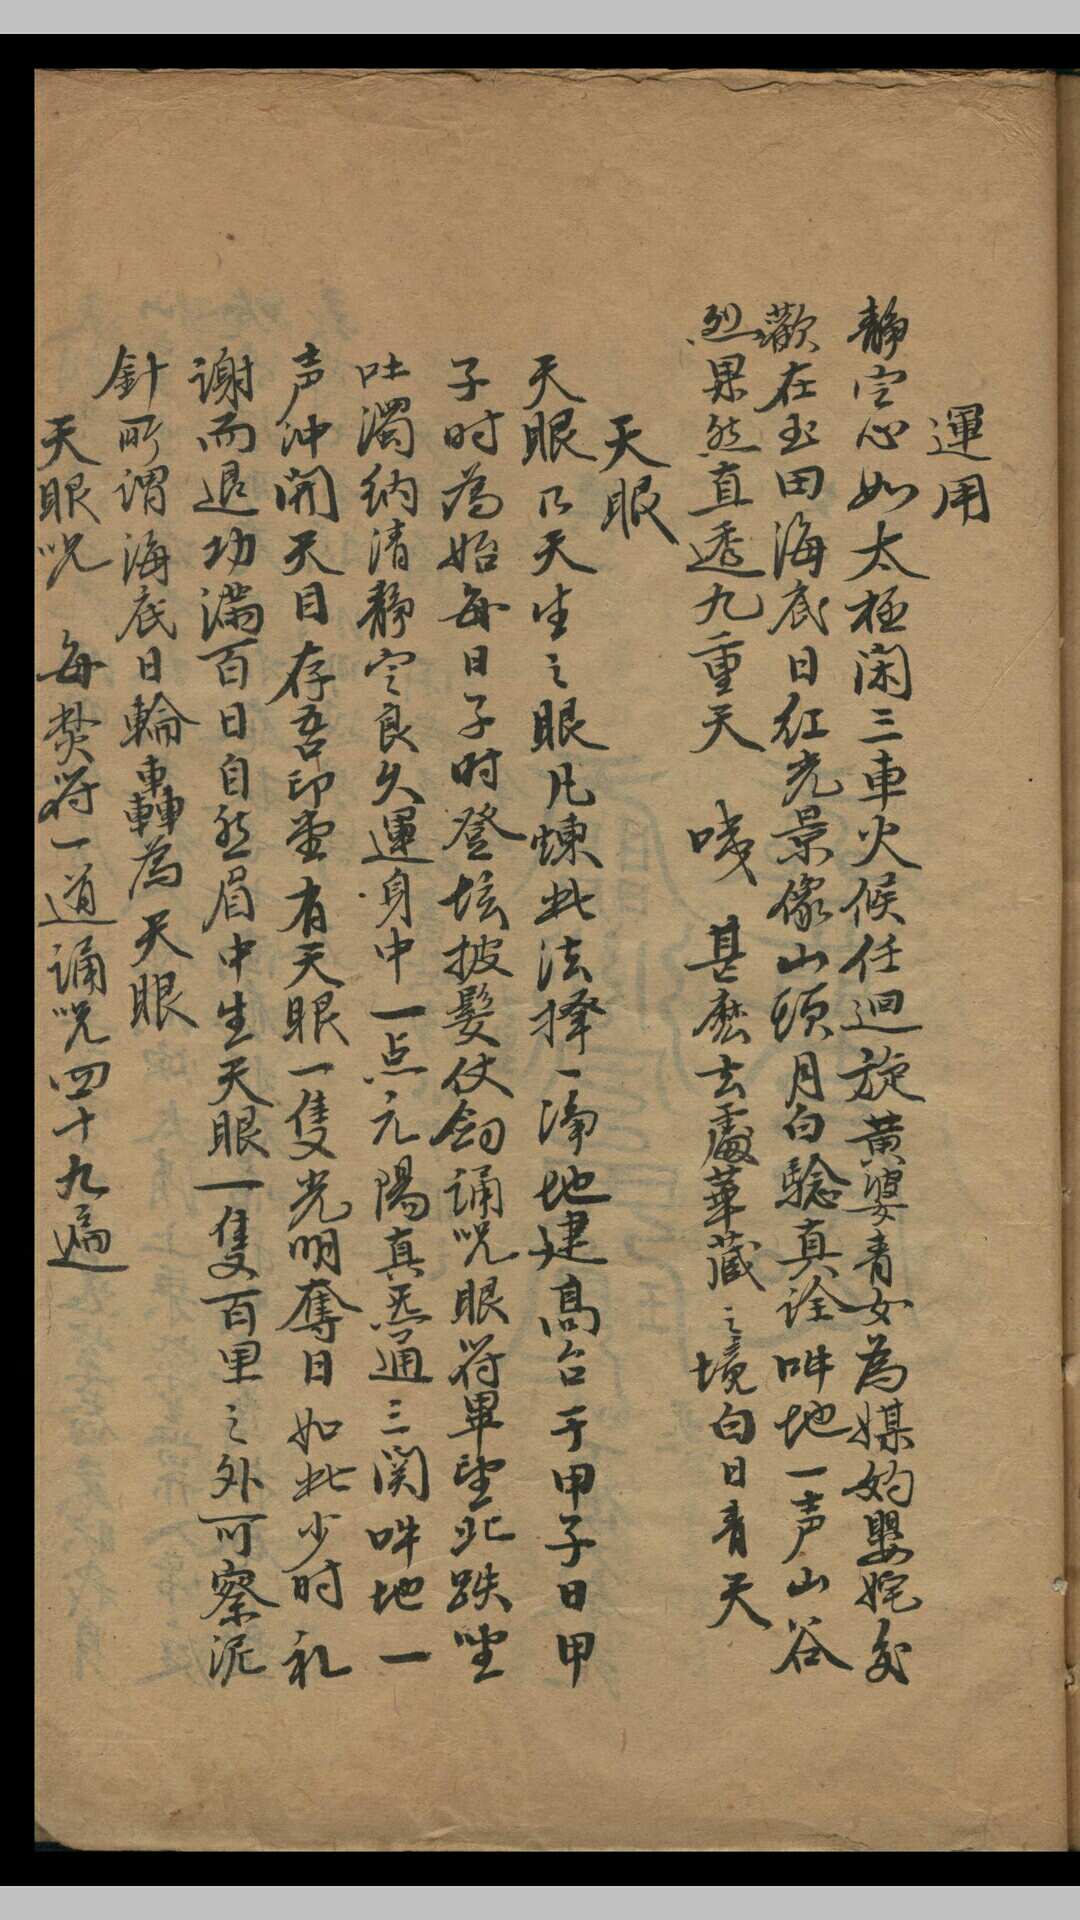 運用
靜定心如太極閑三車火候任迴旋黃婆青女為媒妁嬰姹交
歡在玉田海底日红光景像山頭月白驗真詮吽地一声山谷
烈果然直透九重天　咦　甚麽去處華藏之境白日青天
天眼
天眼乃天生之眼凡煉此法擇一净地建高台于甲子日甲
子时為始每日子时登坛披髮仗劍誦咒眼符畢望北趺坐
吐濁纳清靜定良久運身中一点元陽真炁通三関吽地一
声冲開天目存吾印堂有天眼一隻光明奪日如此少时礼
谢而退功滿百日自然眉中生天眼一隻百里之外可察泥
針所谓海底日輪轉為天眼
天眼咒　每焚符一道誦咒四十九遍